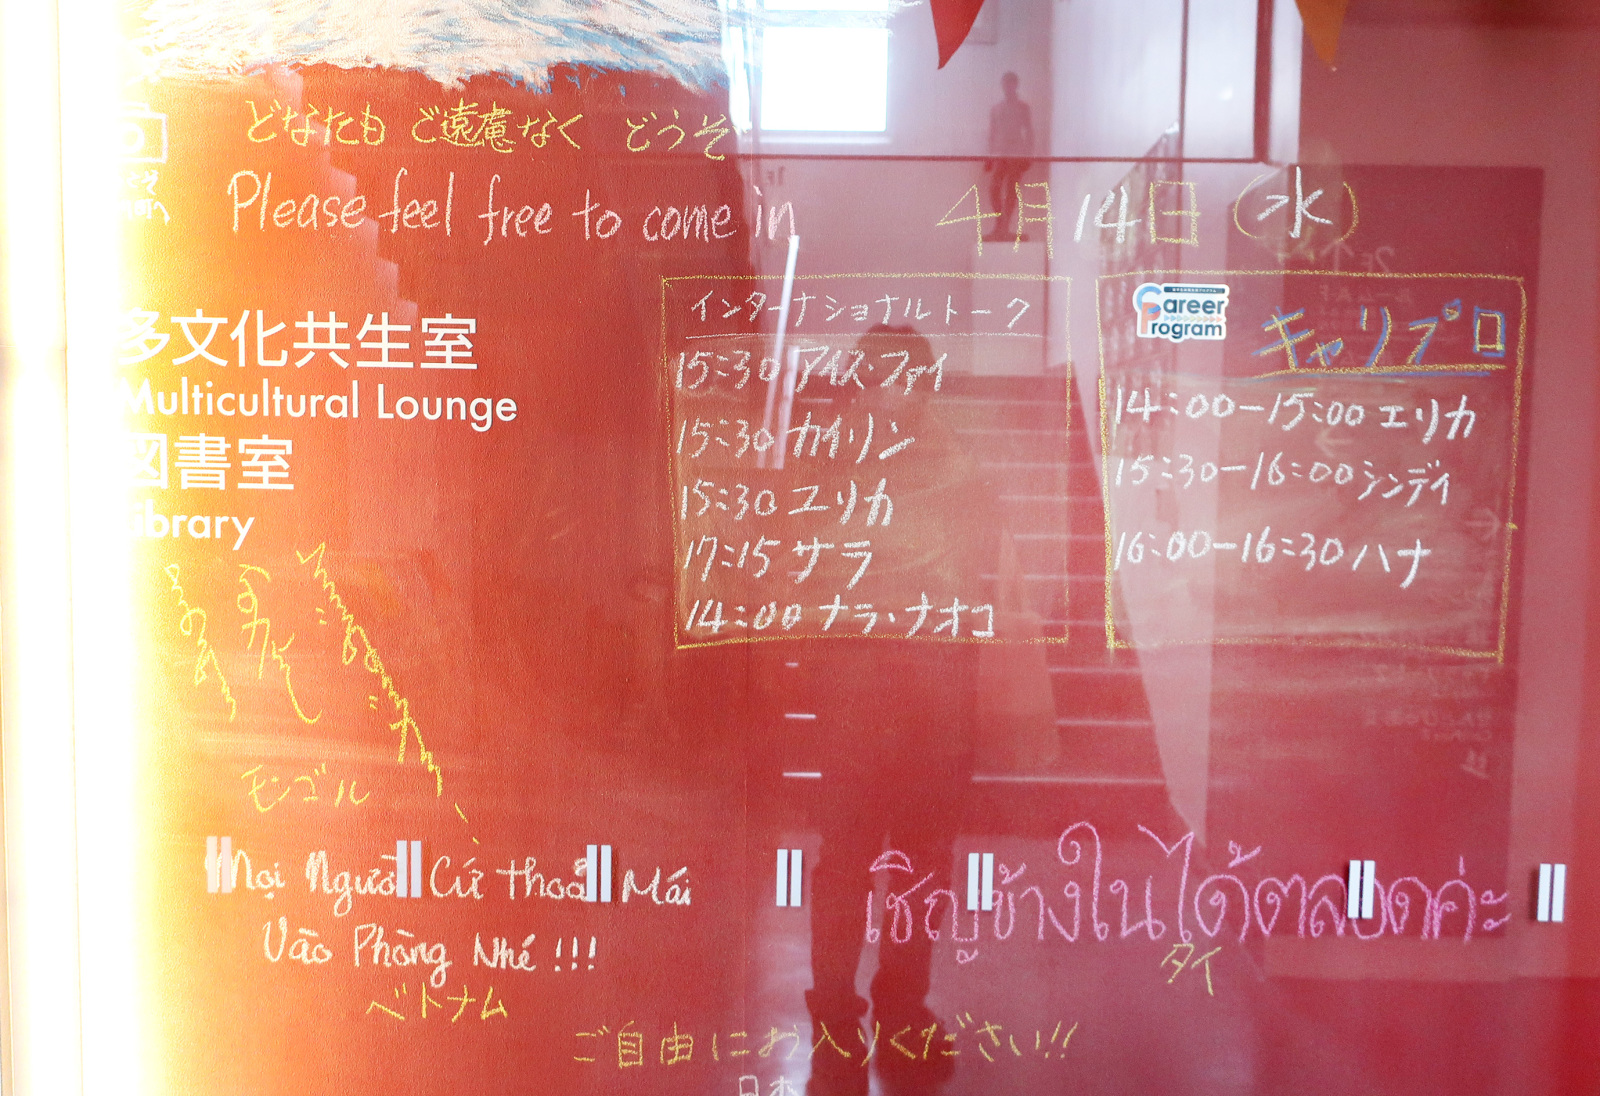 どなたも ご遠慮なく どうぞ
Please feel free to come in
4月14日(水)
多文化共生室
Multicultural Lounge
図書室
Library
インターナショナルトーク
15:30 アイス・ファイ
15:30 カイリン
15:30 エリカ
17:15 サラ
14:00 ナラ・ナオコ
Career
Program
キャリプロ
14:00-15:00 エリカ
15:30-16:00 シンディ
16:00-16:30 ハナ
モンゴル
Mọi Người Cứ thoải Mái
Vào Phòng Nhé !!!
ベトナム
เชิญข้างในได้ตลอดค่ะ
タイ
ご自由にお入りください!!
日本